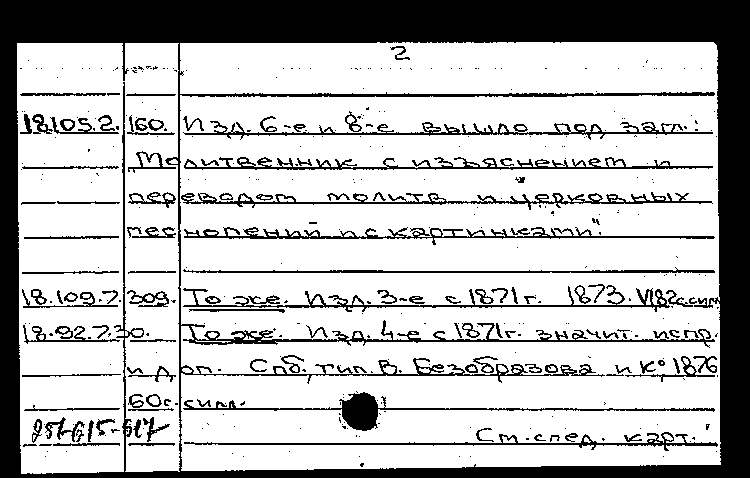 2
18.105.2.160. Изд. 6-е и 8-е вышло под загл.:
"Молитвенник с изъяснением и
переводом молитв и церковных
песнопений и с картинками".
18.109.7.309. То же. Изд. 3-е с 1871 г. 1873. VI, 82 с. илл.
18.92.7.30. То же. Изд. 4-е с 1871 г. значит. испр.
и доп. Спб., тип. В. Безобразова и К°, 1876
60 с. илл.
См. след. карт.